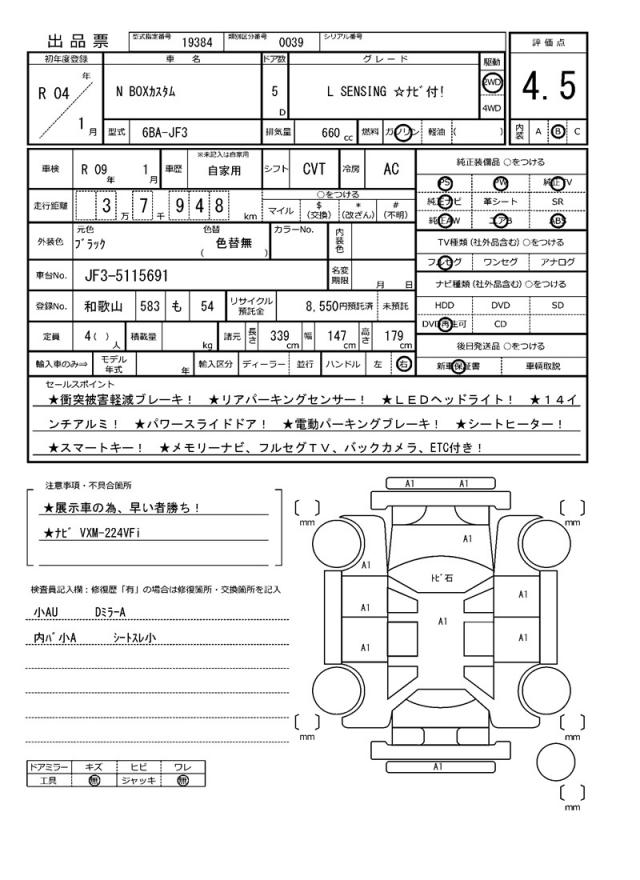 出品票 型式指定番号 19384 類別区分番号 0039 シリアル番号
評価点
初年度登録 車名 ドア数 グレード 駆動
R 04 年 1 月 N BOXカスタム 5 D L SENSING ☆ナビ付! 2WD 4WD
4.5
型式 6BA-JF3 排気量 660 cc 燃料 ガソリン 軽油 ( ) 内装 A B C
車検 R 09 年 1 月 車歴 ※未記入は自家用 自家用 シフト CVT 冷房 AC
純正装備品 ○をつける
PS PW 純正TV
純正ナビ 革シート SR
純正AW エアB ABS
走行距離 3 万 7 千 9 4 8 km ○をつける マイル $ (交換) * (改ざん) # (不明)
外装色 元色 ブラック 色替 ( 色替無 ) カラーNo. 内装色
TV種類 (社外品含む) ○をつける
フルセグ ワンセグ アナログ
車台No. JF3-5115691 名変期限 月 日
ナビ種類 (社外品含む) ○をつける
HDD DVD SD
DVD再生可 CD
登録No. 和歌山 583 も 54 リサイクル預託金 8,550円預託済 未預託
定員 4( ) 人 積載量 kg 諸元 長さ 339 cm 幅 147 cm 高さ 179 cm
後日発送品 ○をつける
新車保証書 車輌取説
輸入車のみ⇒ モデル年式 年 輸入区分 ディーラー 並行 ハンドル 左 右
セールスポイント
★衝突被害軽減ブレーキ! ★リアパーキングセンサー! ★LEDヘッドライト! ★14イ
ンチアルミ! ★パワースライドドア! ★電動パーキングブレーキ! ★シートヒーター!
★スマートキー! ★メモリーナビ、フルセグTV、バックカメラ、ETC付き!
注意事項・不具合箇所
★展示車の為、早い者勝ち!
★ナビ VXM-224VFi
検査員記入欄:修復歴「有」の場合は修復箇所・交換箇所を記入
小AU Dミラー A
内バ小A シートスレ小
ドアミラー キズ ヒビ ワレ
工具 無 ジャッキ 無
A1 A1
[ ] mm [ ] mm
A1
A1
トビ石
A1 A1 A1
A1 A1
[ ] mm [ ] mm
A1
[ ] mm